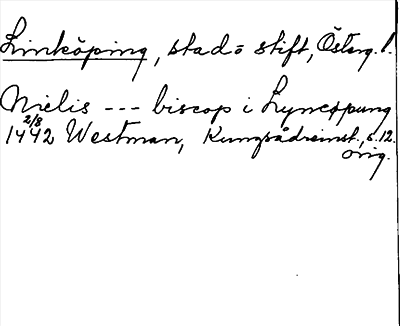 Linköping, stad o stift, Österg. l.
Nielis --- biscop i Lyncopung
2/8
1442 Westman, Kungsrådsinst., s. 12.
orig.